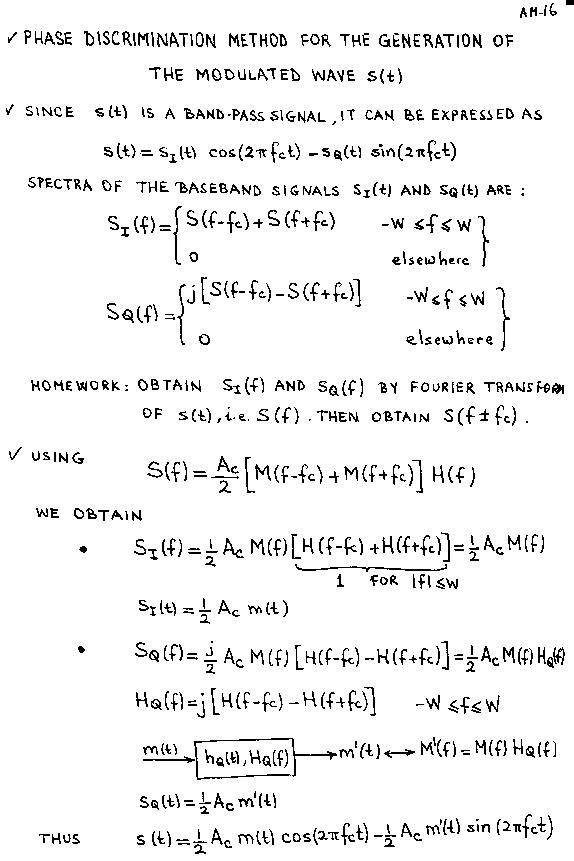 AM-16
✓ PHASE DISCRIMINATION METHOD FOR THE GENERATION OF
THE MODULATED WAVE s(t)
✓ SINCE s(t) IS A BAND-PASS SIGNAL, IT CAN BE EXPRESSED AS
s(t) = s_I(t) cos(2πf_ct) - s_Q(t) sin(2πf_ct)
SPECTRA OF THE BASEBAND SIGNALS S_I(t) AND S_Q(t) ARE :
S_I(f) = { S(f-f_c) + S(f+f_c) -W ≤ f ≤ W }
0 elsewhere
S_Q(f) = { j[S(f-f_c) - S(f+f_c)] -W ≤ f ≤ W }
0 elsewhere
HOMEWORK: OBTAIN S_I(f) AND S_Q(f) BY FOURIER TRANSFORM
OF s(t), i.e. S(f). THEN OBTAIN S(f ± f_c).
✓ USING S(f) = A_c/2 [M(f-f_c) + M(f+f_c)] H(f)
WE OBTAIN
• S_I(f) = 1/2 A_c M(f) [H(f-f_c) + H(f+f_c)] = 1/2 A_c M(f)
1 FOR |f| ≤ W
S_I(t) = 1/2 A_c m(t)
• S_Q(f) = j/2 A_c M(f) [H(f-f_c) - H(f+f_c)] = 1/2 A_c M(f) H_Q(f)
H_Q(f) = j[H(f-f_c) - H(f+f_c)] -W ≤ f ≤ W
m(t) → h_Q(t), H_Q(f) → m'(t) ↔ M'(f) = M(f) H_Q(f)
s_Q(t) = 1/2 A_c m'(t)
THUS s(t) = 1/2 A_c m(t) cos(2πf_ct) - 1/2 A_c m'(t) sin(2πf_ct)